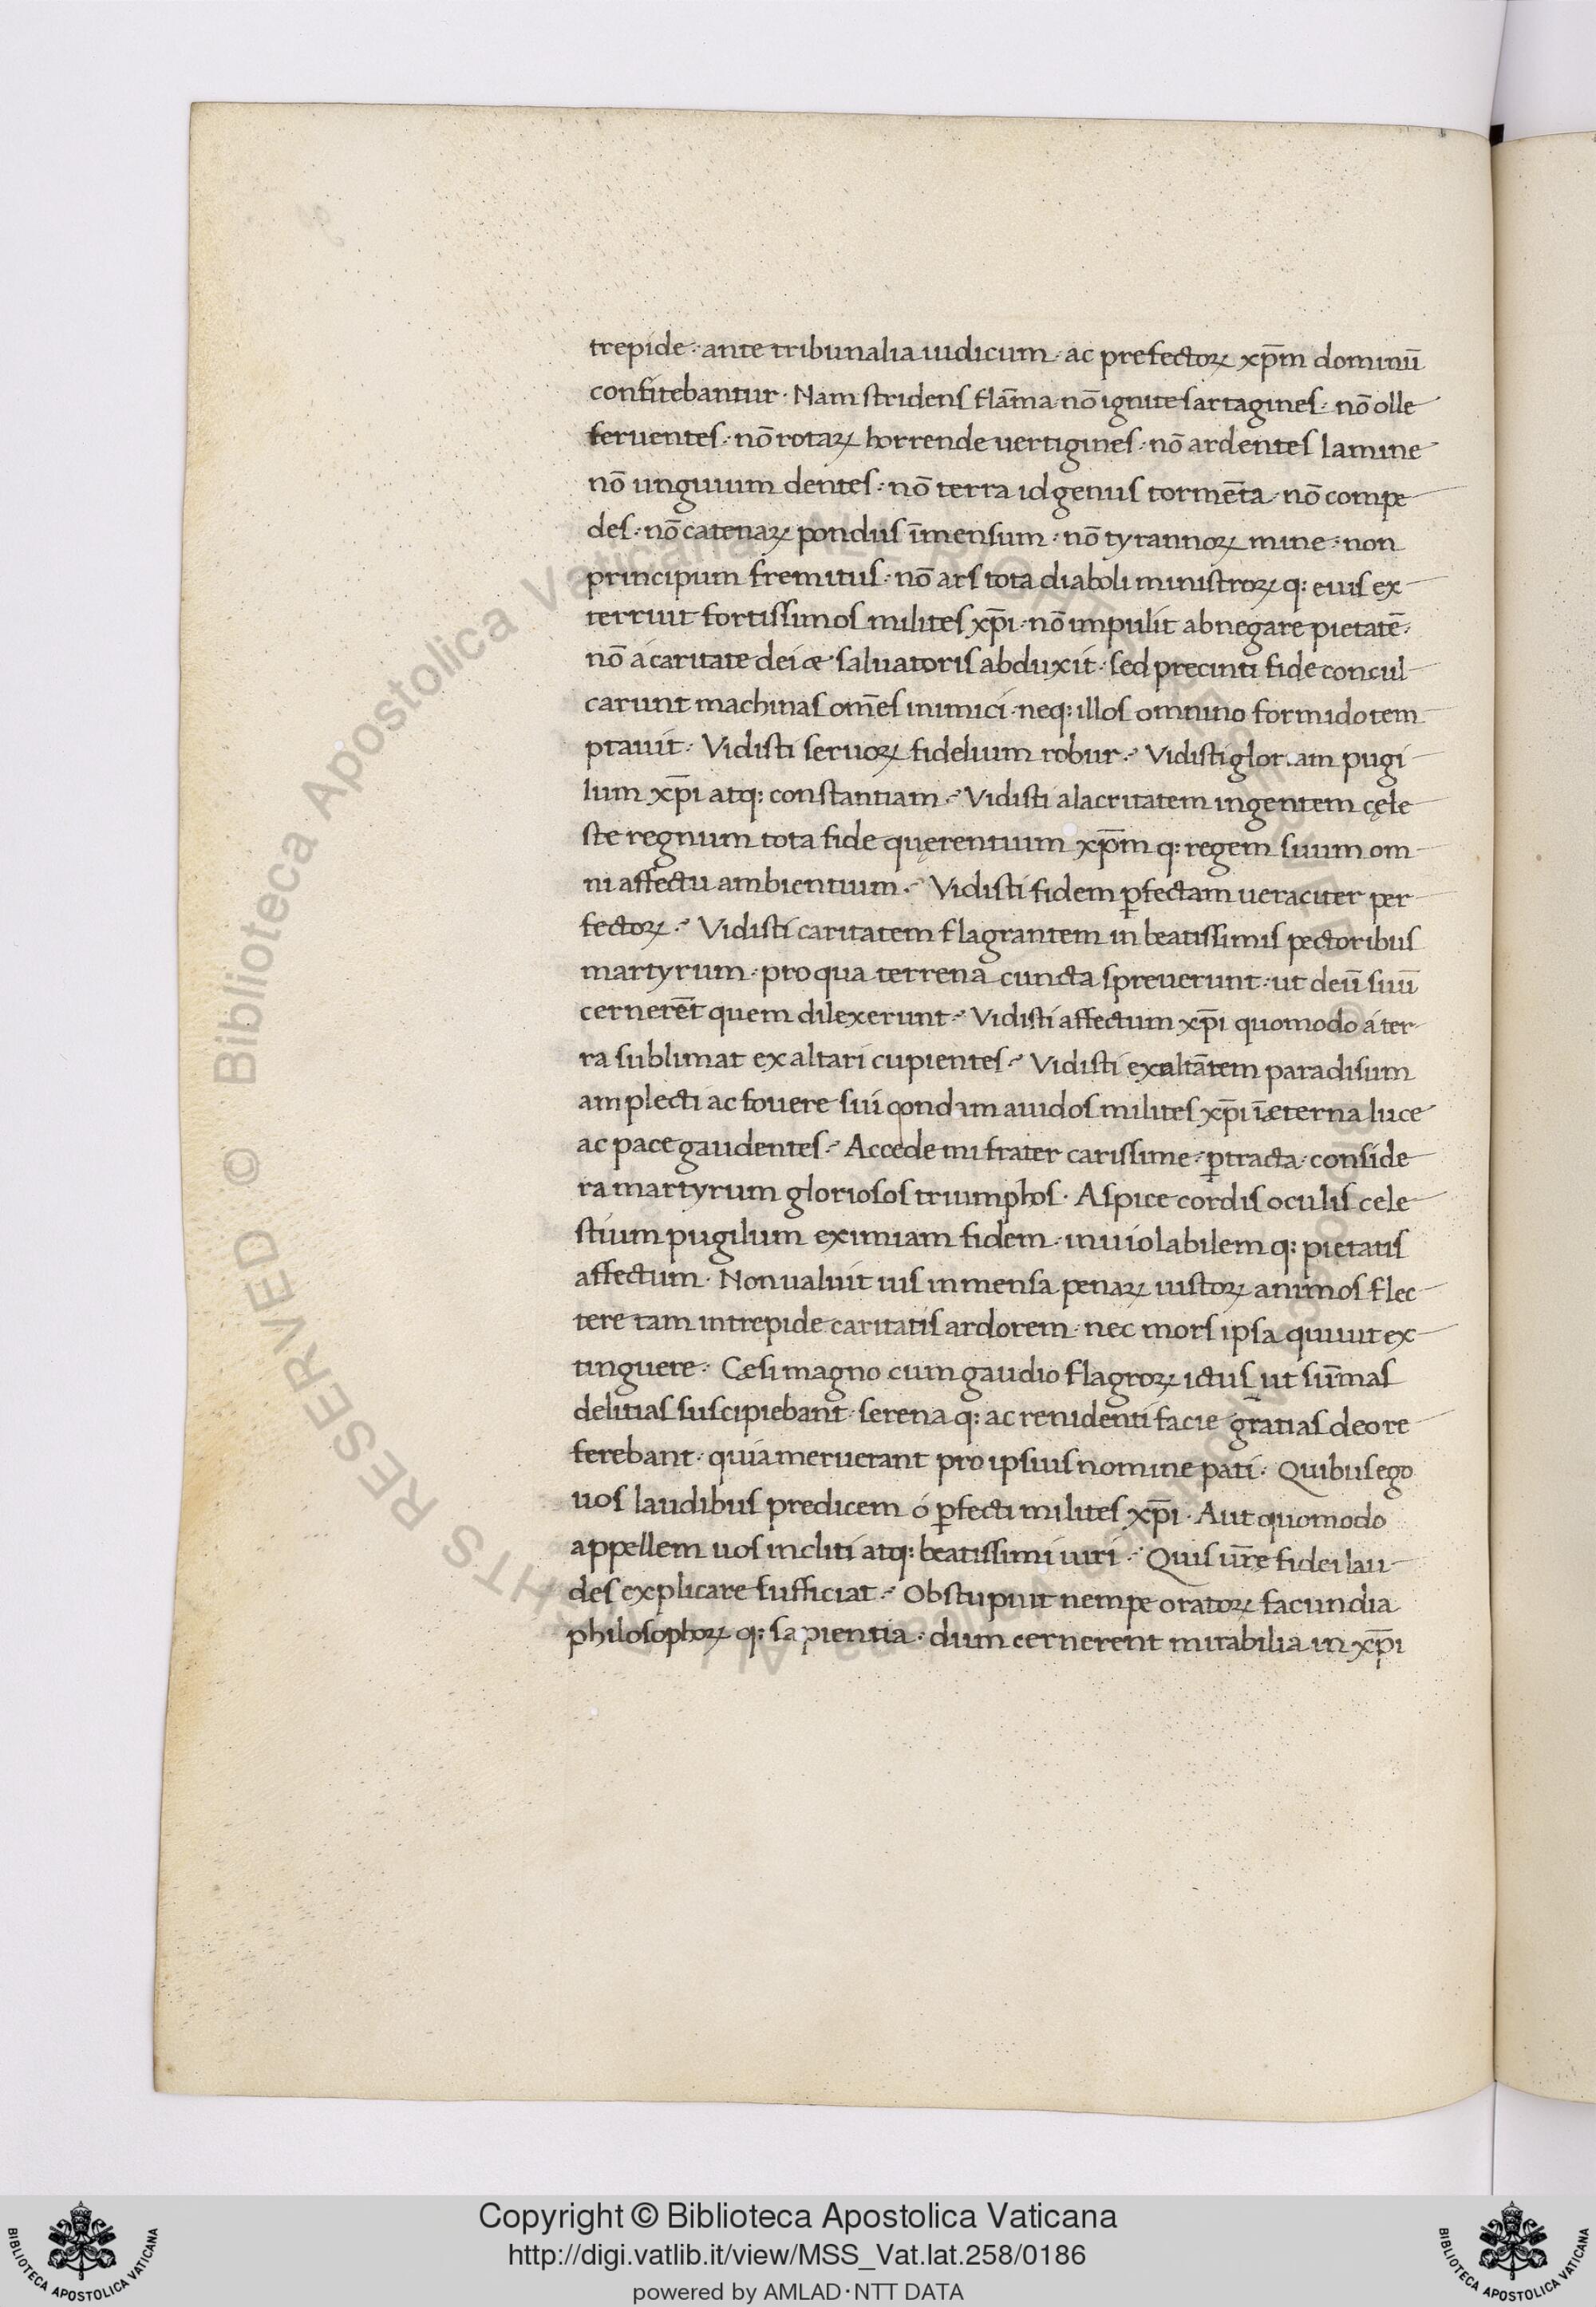 trepide · ante tribunalia iudicum · ac prefectoꝝ xp̄m dominū
confitebantur · Nam stridens flām̄a nō ignite sartagines · nō olle
feruentes · nō rotaꝝ horrende uertigines · nō ardentes lamine
nō unguium dentes · nō terra id genus tormēta · nō compe
des · nō catenaꝝ pondus īmensum · nō tyrannoꝝ mine · non
principum fremitus · nō ars tota diaboli ministroꝝ q: eius ex
terruit fortissimos milites xp̄i · nō impulit abnegare pietatē ·
nō a caritate dei æ saluatoris abduxit · sed precinti fide concul
carunt machinas om̄es inimici · neq: illos omnino formido tem
ptauit · Vidisti seruoꝝ fidelium robur · Vidisti glor am pugi
lum xp̄i atq: constantiam · Vidisti alacritatem ingentem cęle
ste regnum tota fide quęrentium xp̄m q: regem suum om
ni affectu ambientium · Vidisti fidem ꝑfectam ueraciter per
fectoꝝ · Vidisti caritatem flagrantem in beatissimis pectoribus
martyrum · pro qua terrena cuncta spreuerunt · ut deū suū
cernerēt quem dilexerunt · Vidisti affectum xp̄i quomodo á ter
ra sublimat exaltari cupientes · Vidisti exultātem paradisum
amplecti ac fouere sui qondam auidos milites xp̄i ī æterna luce
ac pace gaudentes · Accede mi frater carissime · ꝑtracta · conside
ra martyrum gloriosos triumphos · Aspice cordis oculis cele
stium pugilum eximiam fidem · inuiolabilem q: pietatis
affectum · Non ualuit uis inmensa penaꝝ iustoꝝ animos flec
tere tam intrepide caritatis ardorem · nec mors ipsa quiuit ex
tinguere · Cæsi magno cum gaudio flagroꝝ ictus ut sūmas
delitias suscipiebant · serena q: ac renidenti facie gratias deo re
ferebant · quia meruerant pro ipsius nomine pati · Quibus ego
uos laudibus predicem ó ꝑfecti milites xp̄i · Aut quomodo
appellem uos incliti atq: beatissimi uiri · Quis ur̄ę fidei lau
des explicare sufficiat · Obstupuit nempe oratoꝝ facundia
philosophoꝝ q: sapientia · dum cernerent mirabilia in xp̄i
Copyright © Biblioteca Apostolica Vaticana
http://digi.vatlib.it/view/MSS_Vat.lat.258/0186
powered by AMLAD·NTT DATA